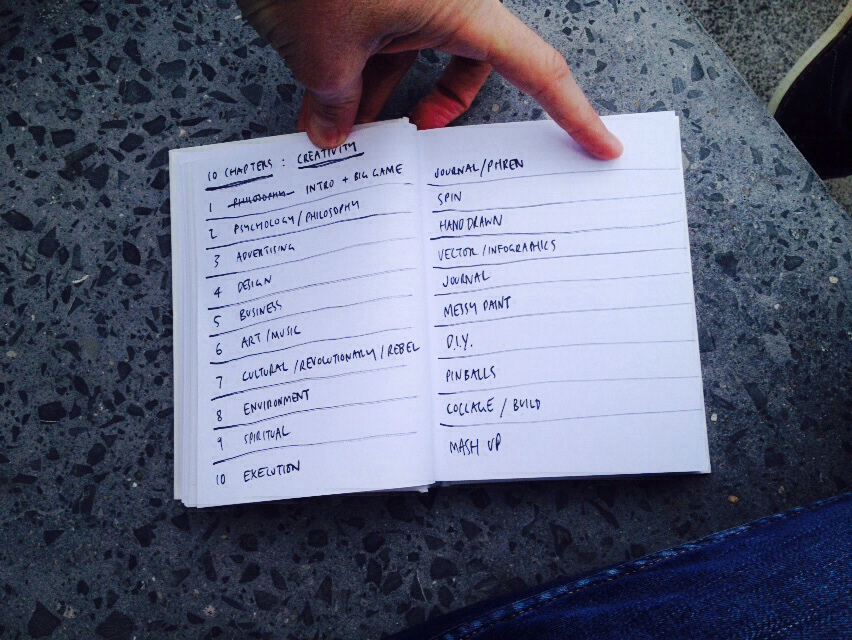 10 CHAPTERS : CREATIVITY
1 PHILOSOPHY INTRO + BIG GAME
2 PSYCHOLOGY / PHILOSOPHY
3 ADVERTISING
4 DESIGN
5 BUSINESS
6 ART / MUSIC
7 CULTURAL / REVOLUTIONARY / REBEL
8 ENVIRONMENT
9 SPIRITUAL
10 EXECUTION
JOURNAL / PHREN
SPIN
HAND DRAWN
VECTOR / INFOGRAPHICS
JOURNAL
MESSY PAINT
D.I.Y.
PINBALLS
COLLAGE / BUILD
MASH UP